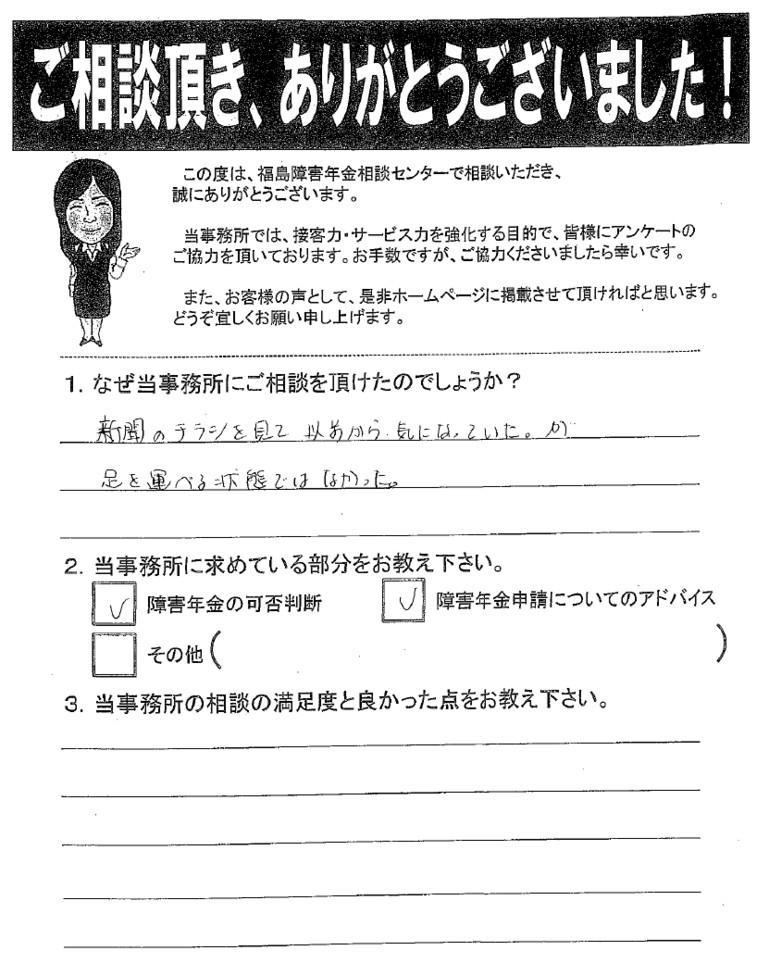 ご相談頂き、ありがとうございました！
この度は、福島障害年金相談センターで相談いただき、
誠にありがとうございます。
当事務所では、接客力・サービス力を強化する目的で、皆様にアンケートの
ご協力を頂いております。お手数ですが、ご協力くださいましたら幸いです。
また、お客様の声として、是非ホームページに掲載させて頂ければと思います。
どうぞ宜しくお願い申し上げます。
1. なぜ当事務所にご相談を頂けたのでしょうか？
新聞のチラシを見て 以前から 気になっていた。が
足を運べる状態では なかった。
2. 当事務所に求めている部分をお教え下さい。
障害年金の可否判断 障害年金申請についてのアドバイス
その他( )
3. 当事務所の相談の満足度と良かった点をお教え下さい。